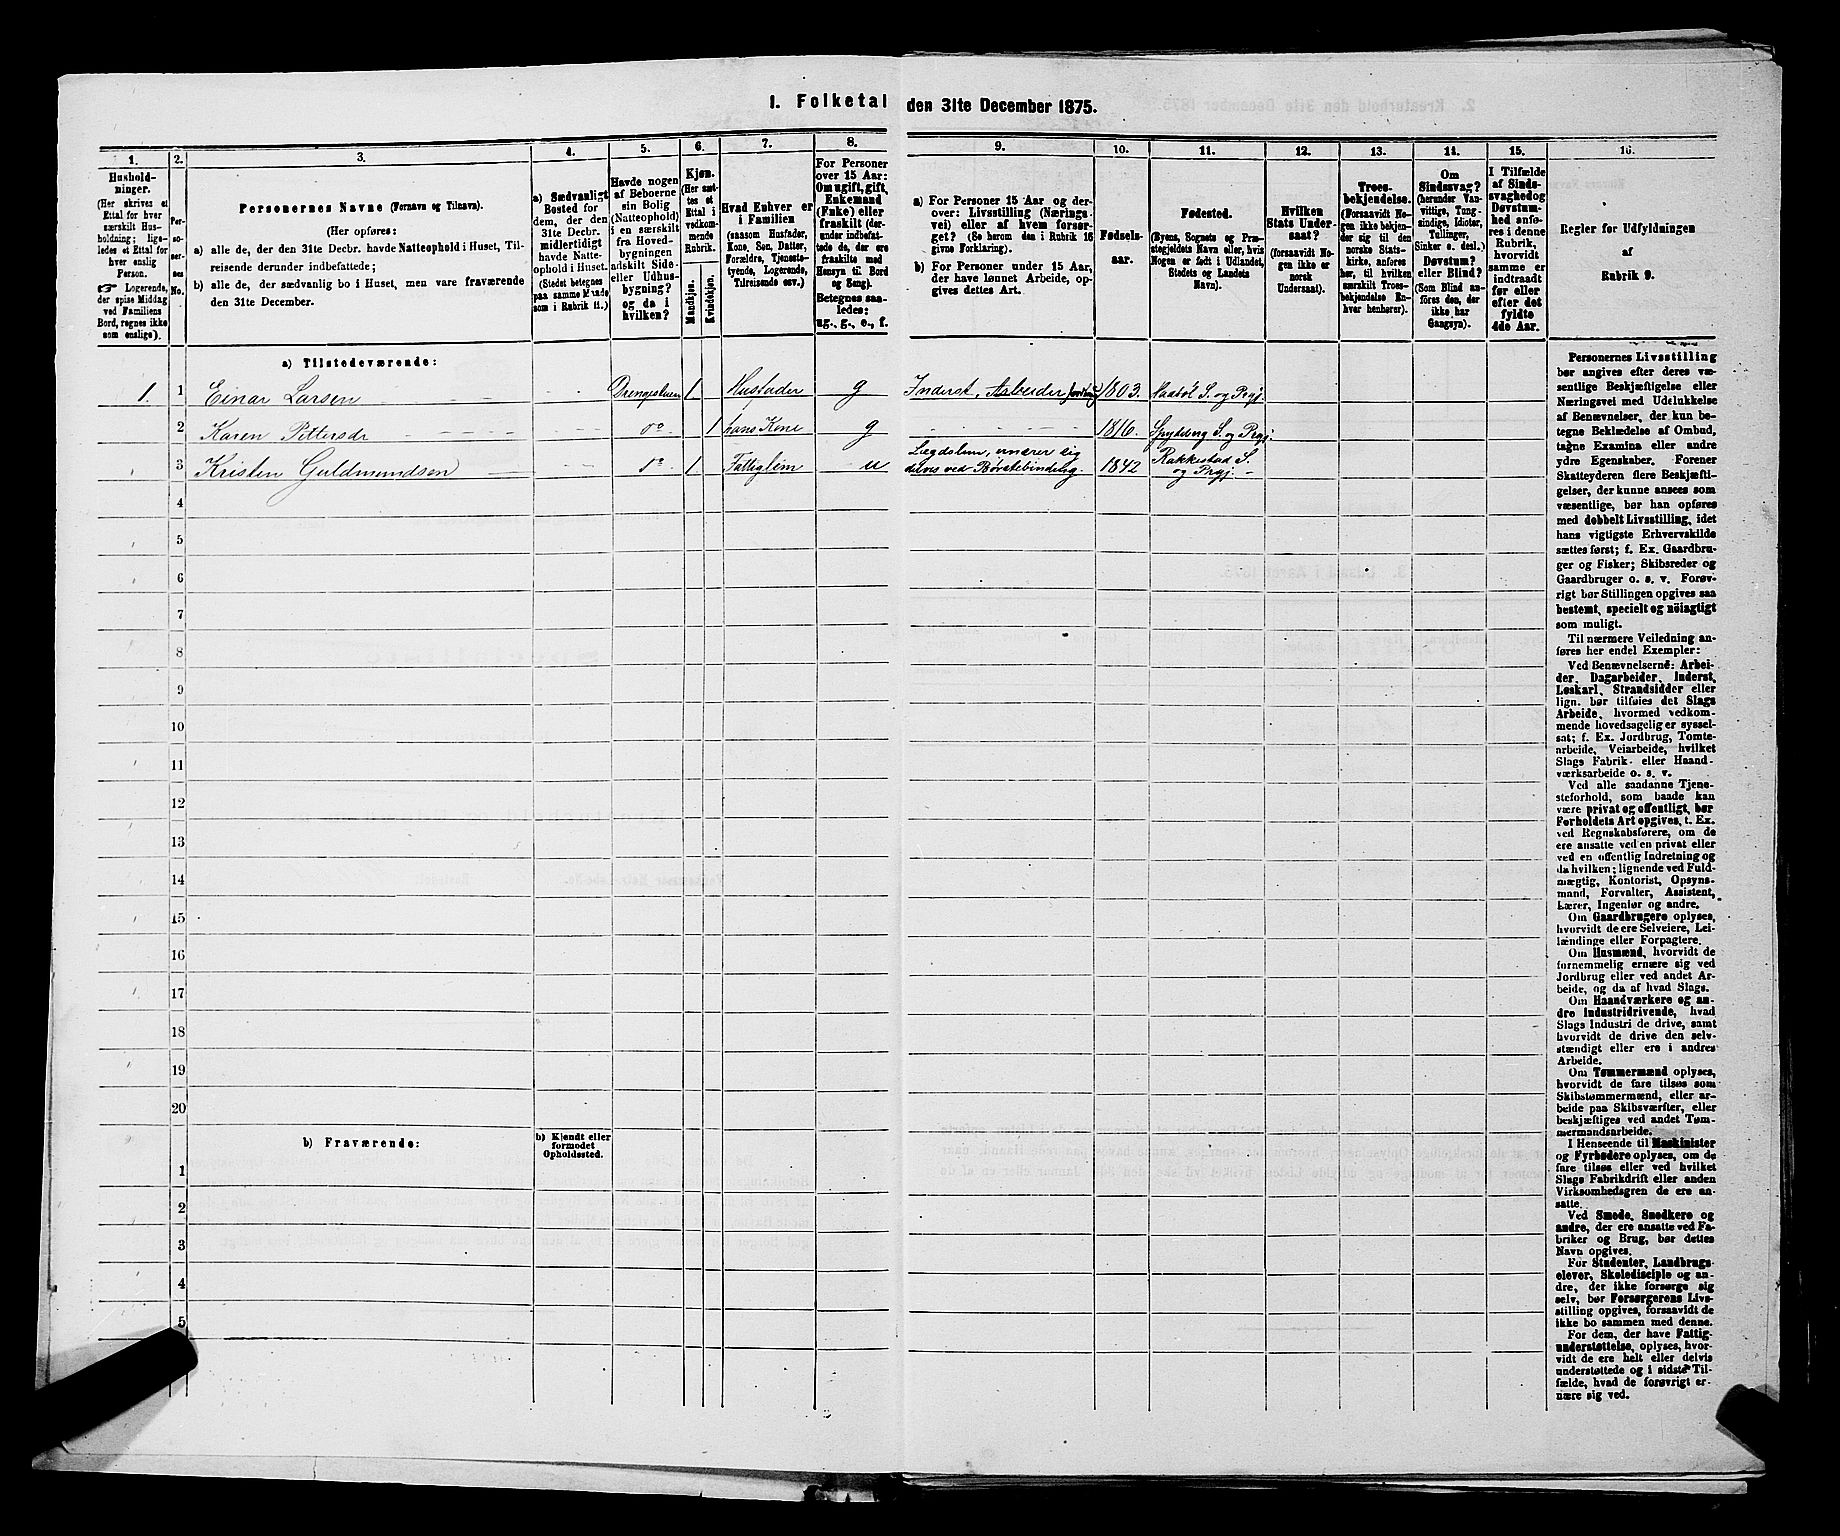 1. Folketal den 31te December 1875.
1.
2.
3.
4.
5.
6.
7.
8.
9.
10.
11.
12.
13.
14.
15.
16.
Hushold-
ninger.
(Her skrives et
Ettal for hver
særskilt Hus-
holdning; lige-
ledes et Ettal for
hver enslig
Person.
☞ Logerende,
der spise Middag
ved Familiens
Bord, regnes ikke
som enslige).
Per-
so-
ner-
nes
No.
Personernes Navne (Fornavn og Tilnavn).
(Her opføres:
a) alle de, der den 31te Decbr. havde Natteophold i Huset, Til-
reisende derunder indbefattede;
b) alle de, der sædvanlig bo i Huset, men vare fraværende
den 31te December.
a) Sædvanligt
Bosted for
dem, der den
31te Decbr.
midlertidigt
havde Natte-
ophold i Huset.
(Stedet betegnes
paa samme Maade
som i Rubrik 11.)
Havde nogen
af Beboerne
sin Bolig
(Natteophold)
i en særskilt
fra Hoved-
bygningen
adskilt Side-
eller Udhus-
bygning?
og da i
hvilken?
Kjøn.
(Her sæt-
tes et
Ettal i
vedkom-
mende
Rubrik.
Mandkjøn.
Kvindekjøn.
Hvad Enhver er
i Familien
(saasom Husfader,
Kone, Søn, Datter,
Forældre, Tjeneste-
tyende, Logerende,
Tilreisende osv.)
For Personer
over 15 Aar:
Om ugift, gift,
Enkemand
(Enke) eller
fraskilt (der-
under indbefat-
tede de, der ere
fraskilte med
Hensyn til Bord
og Seng).
Betegnes saa-
ledes:
ug., g., e., f.
a) For Personer 15 Aar og der-
over: Livsstilling (Nærings-
vei) eller af hvem forsør-
get? (Se herom den i Rubrik 16
givne Forklaring).
b) For Personer under 15 Aar,
der have lønnet Arbeide, op-
gives dettes Art.
Fødsels-
aar.
Fødested.
(Byens, Sognets og Præ-
stegjeldets Navn eller, hvis
Nogen er født i Udlandet,
Stedets og Landets
Navn).
Hvilken
Stats Under-
saat?
(forsaavidt No-
gen ikke er
norsk
Undersaat).
Troes-
bekjendelse.
(Forsaavidt No-
gen ikke bekjen-
der sig til den
norske Stats-
kirke, anføres
her, til hvilken
særskilt Troes-
bekjendelse En-
hver henhører).
Om
Sindssvag?
(herunder Van-
vittige, Tung-
sindige, Idioter,
Tullinger,
Sinker o. desl.)
Døvstum?
eller Blind?
(Som Blind an-
føres den, der
ikke har
Gangsyn).
I Tilfælde
af Sinds-
svaghed og
Døvstum-
hed anfø-
res i denne
Rubrik,
hvorvidt
samme er
indtraadt
før eller
efter det
fyldte
4de Aar.
Regler for Udfyldningen
af
Rubrik 9.
a) Tilstedeværende:
1. 1 Einar Larsen Drengestuen 1 Husfader g Inderst, Arbeider 1803. S. og Prgj.
2 Karen Pittersdr do 1 hans Kone g 1816. Spydeberg S. og Prgj.
3 Kristen Guldmundsen do 1 Fattiglem u Lægdslem, ernærer sig
delvis ved Børstebinding. 1842 Rakkestad S.
og Prgj.
4
5
6
7
8
9
10
11
12
13
14
15
16
17
18
19
20
b) Fraværende:
b) Kjendt eller
formodet
Opholdssted.
1
2
3
4
5
Personernes Livsstilling
bør angives efter deres væ-
sentlige Beskjæftigelse eller
Næringsvei med Udelukkelse
af Benævnelser, der kun be-
tegne Beklædelse af Ombud,
tagne Examina eller andre
ydre Egenskaber. Forener
Skatteyderen flere Beskjæfti-
gelser, der kunne ansees som
væsentlige, bør han opføres
med dobbelt Livsstilling, idet
hans vigtigste Erhvervskilde
sættes først; f. Ex. Gaardbru-
ger og Fisker; Skibsreder og
Gaardbruger o. s. v. Forøv-
rigt bør Stillingen opgives saa
bestemt, specielt og nöiagtigt
som muligt.
Til nærmere Veiledning an-
føres her endel Exempler:
Ved Benævnelserne: Arbei-
der, Dagarbeider, Inderst,
Løskarl, Strandsidder eller
lign. bør tilføies det Slags
Arbeide, hvormed vedkom-
mende hovedsagelig er syssel-
sat; f. Ex. Jordbrug, Tomte-
arbeide, Veiarbeide, hvilket
Slags Fabrik- eller Haand-
værksarbeide o. s. v.
Ved alle saadanne Tjene-
steforhold, som baade kan
være privat og offentligt, bør
Forholdets Art opgives, t. Ex.
ved Regnskabsførere, om de
ere ansatte ved en privat eller
ved en offentlig Indretning og
da hvilken; lignende ved Fuld-
mægtig, Kontorist, Opsyns-
mand, Forvalter, Assistent,
Lærer, Ingeniør og andre.
Om Gaardbrugere oplyses,
hvorvidt de ere Selveiere, Lei-
lændinge eller Forpagtere.
Om Husmænd, hvorvidt de
fornemmelig ernære sig ved
Jordbrug eller ved andet Ar-
beide, og da af hvad Slags.
Om Haandværkere og an-
dre industridrivende, hvad
Slags Industri de drive, samt
hvorvidt de drive den selv-
stændigt eller ere i andres
Arbeide.
Om Tømmermænd oplyses,
hvorvidt de fare tilsøs som
Skibstømmermænd, eller ar-
beide paa Skibsværfter, eller
beskjæftiges ved andet Tøm-
mermandsarbeide.
I Henseende til Maskinister
og Fyrbødere oplyses, om de
fare tilsøs eller ved hvilket
Slags Fabrikdrift eller anden
Virksomhedsgren de ere an-
satte.
Ved Smede, Snedkere og
andre, der ere ansatte ved Fa-
briker og Brug, bør dettes
Navn opgives.
For Studenter, Landbrugs-
elever, Skoledisciple og an-
dre, der ikke forsørge sig
selv, bør Forsørgerens Livs-
stilling opgives, forsaavidt de
ikke bo sammen med denne.
For dem, der have Fattig-
understøttelse, oplyses, hvor-
vidt de ere helt eller delvis
understøttede og i sidste Til-
fælde, hvad de forøvrigt er-
nære sig ved.